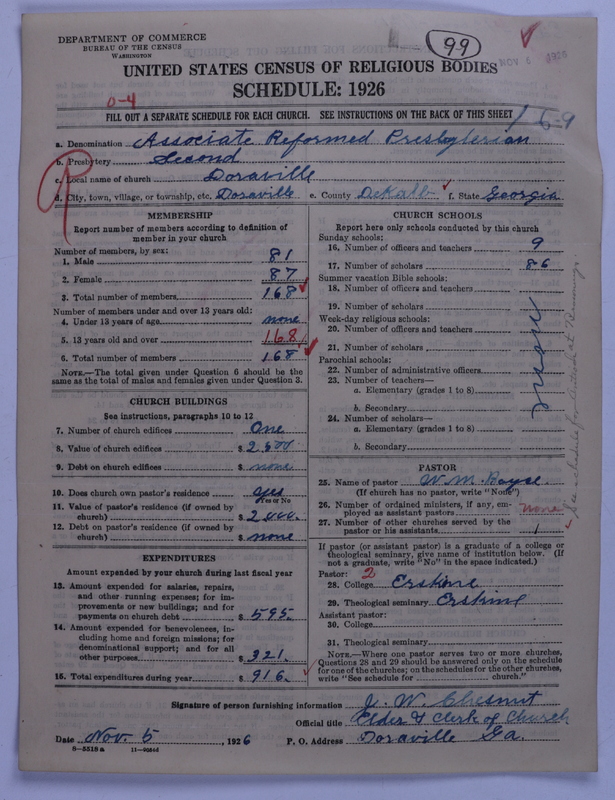 DEPARTMENT OF COMMERCE
BUREAU OF THE CENSUS
WASHINGTON
99
NOV 6 1926
UNITED STATES CENSUS OF RELIGIOUS BODIES
SCHEDULE: 1926
0-4
FILL OUT A SEPARATE SCHEDULE FOR EACH CHURCH. SEE INSTRUCTIONS ON THE BACK OF THIS SHEET
16-9
a. Denomination Associate Reformed Presbyterian
b. Presbytery Second
c. Local name of church Doraville
d. City, town, village, or township, etc. Doraville e. County DeKalb f. State Georgia
R
MEMBERSHIP
Report number of members according to definition of member in your church
Number of members, by sex:
1. Male 81
2. Female 87
3. Total number of members 168
Number of members under and over 13 years old:
4. Under 13 years of age none
5. 13 years old and over 168
6. Total number of members 168
NOTE.—The total given under Question 6 should be same as the total of males and females given under Question 3.
CHURCH BUILDINGS
See instructions, paragraphs 10 to 12
7. Number of church edifices One
8. Value of church edifices $ 2,500
9. Debt on church edifices $ none
10. Does church own pastor's residence yes
Yes or No
11. Value of pastor's residence (if owned by church) $ 2,000.
12. Debt on pastor's residence (if owned by church) $ none
EXPENDITURES
Amount expended by your church during last fiscal year
13. Amount expended for salaries, repairs, and other running expenses; for improvements or new buildings; and for payments on church debt $ 595.
14. Amount expended for benevolences, including home and foreign missions; for denominational support; and for all other purposes $ 321.
15. Total expenditures during year $ 916.
CHURCH SCHOOLS
Report here only schools conducted by this church
Sunday schools:
16. Number of officers and teachers 9
17. Number of scholars 86
Summer vacation Bible schools:
18. Number of officers and teachers
19. Number of scholars
Week-day religious schools:
20. Number of officers and teachers
21. Number of scholars
Parochial schools:
22. Number of administrative officers
23. Number of teachers—
a. Elementary (grades 1 to 8)
b. Secondary
24. Number of scholars—
a. Elementary (grades 1 to 8)
b. Secondary
none
See schedule for
PASTOR
25. Name of pastor W. M. Boyce
(If church has no pastor, write "None")
26. Number of ordained ministers, if any, employed as assistant pastors none
27. Number of other churches served by the pastor or his assistants 1
If pastor (or assistant pastor) is a graduate of a college or theological seminary, give name of institution below. (If not a graduate, write "No" in the space indicated.)
Pastor: 2
28. College Erskine
29. Theological seminary Erskine
Assistant pastor:
30. College
31. Theological seminary
NOTE.—Where one pastor serves two or more churches, Questions 28 and 29 should be answered only on the schedule for one of the churches; on the schedules for the other churches, write "See schedule for church."
Signature of person furnishing information J. W. Chesnut
Official title Elder & Clerk of Church
Date Nov. 5, 1926 P. O. Address Doraville Ga.
8-5518 a